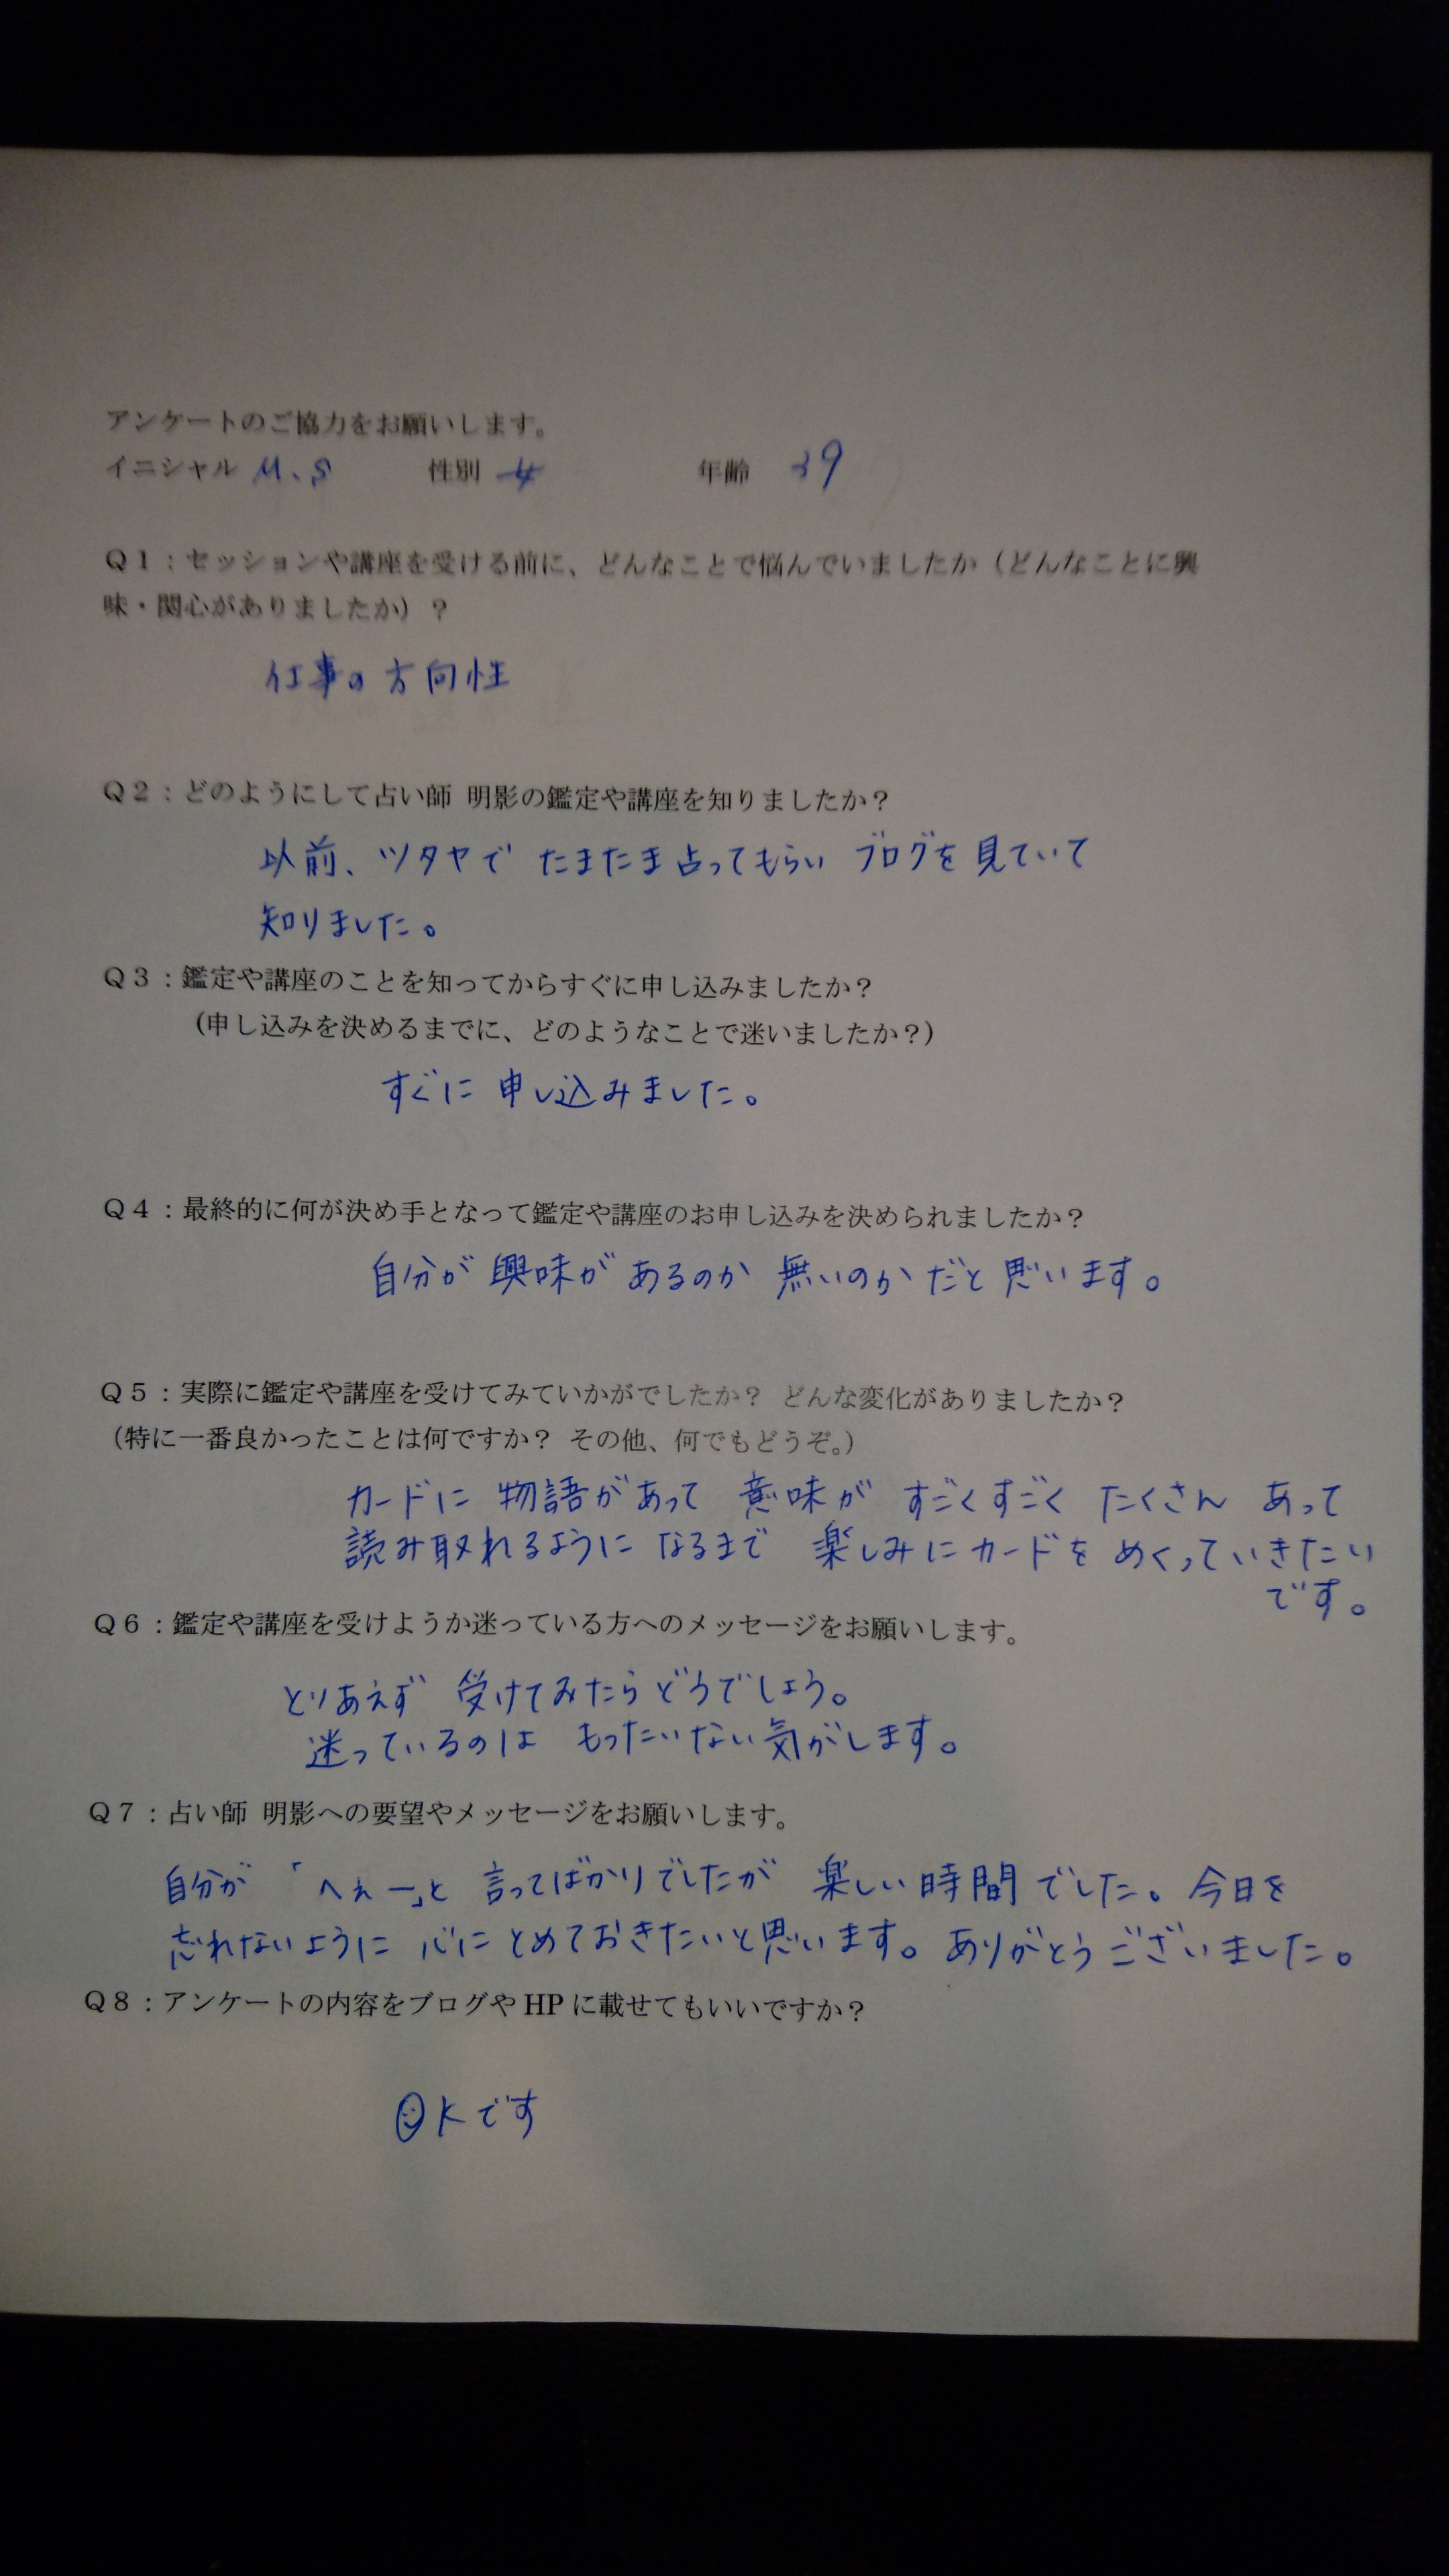 アンケートのご協力をお願いします。
イニシャル M.S 性別 女 年齢 39
Q1：セッションや講座を受ける前に、どんなことで悩んでいましたか（どんなことに興
味・関心がありましたか）？
仕事の方向性
Q2：どのようにして占い師 明影の鑑定や講座を知りましたか？
以前、ツタヤで たまたま占ってもらい ブログを見ていて
知りました。
Q3：鑑定や講座のことを知ってからすぐに申し込みましたか？
（申し込みを決めるまでに、どのようなことで迷いましたか？）
すぐに申し込みました。
Q4：最終的に何が決め手となって鑑定や講座のお申し込みを決められましたか？
自分が興味があるのか 無いのかだと思います。
Q5：実際に鑑定や講座を受けてみていかがでしたか？ どんな変化がありましたか？
（特に一番良かったことは何ですか？ その他、何でもどうぞ。）
カードに物語があって 意味が すごくすごく たくさん あって
読み取れるように なるまで 楽しみにカードを めくっていきたい
です。
Q6：鑑定や講座を受けようか迷っている方へのメッセージをお願いします。
とりあえず 受けてみたらどうでしょう。
迷っているのは もったいない気がします。
Q7：占い師 明影への要望やメッセージをお願いします。
自分が 「へぇー」と 言ってばかりでしたが 楽しい時間でした。今日を
忘れないように 心にとめておきたいと思います。ありがとうございました。
Q8：アンケートの内容をブログやHPに載せてもいいですか？
OKです